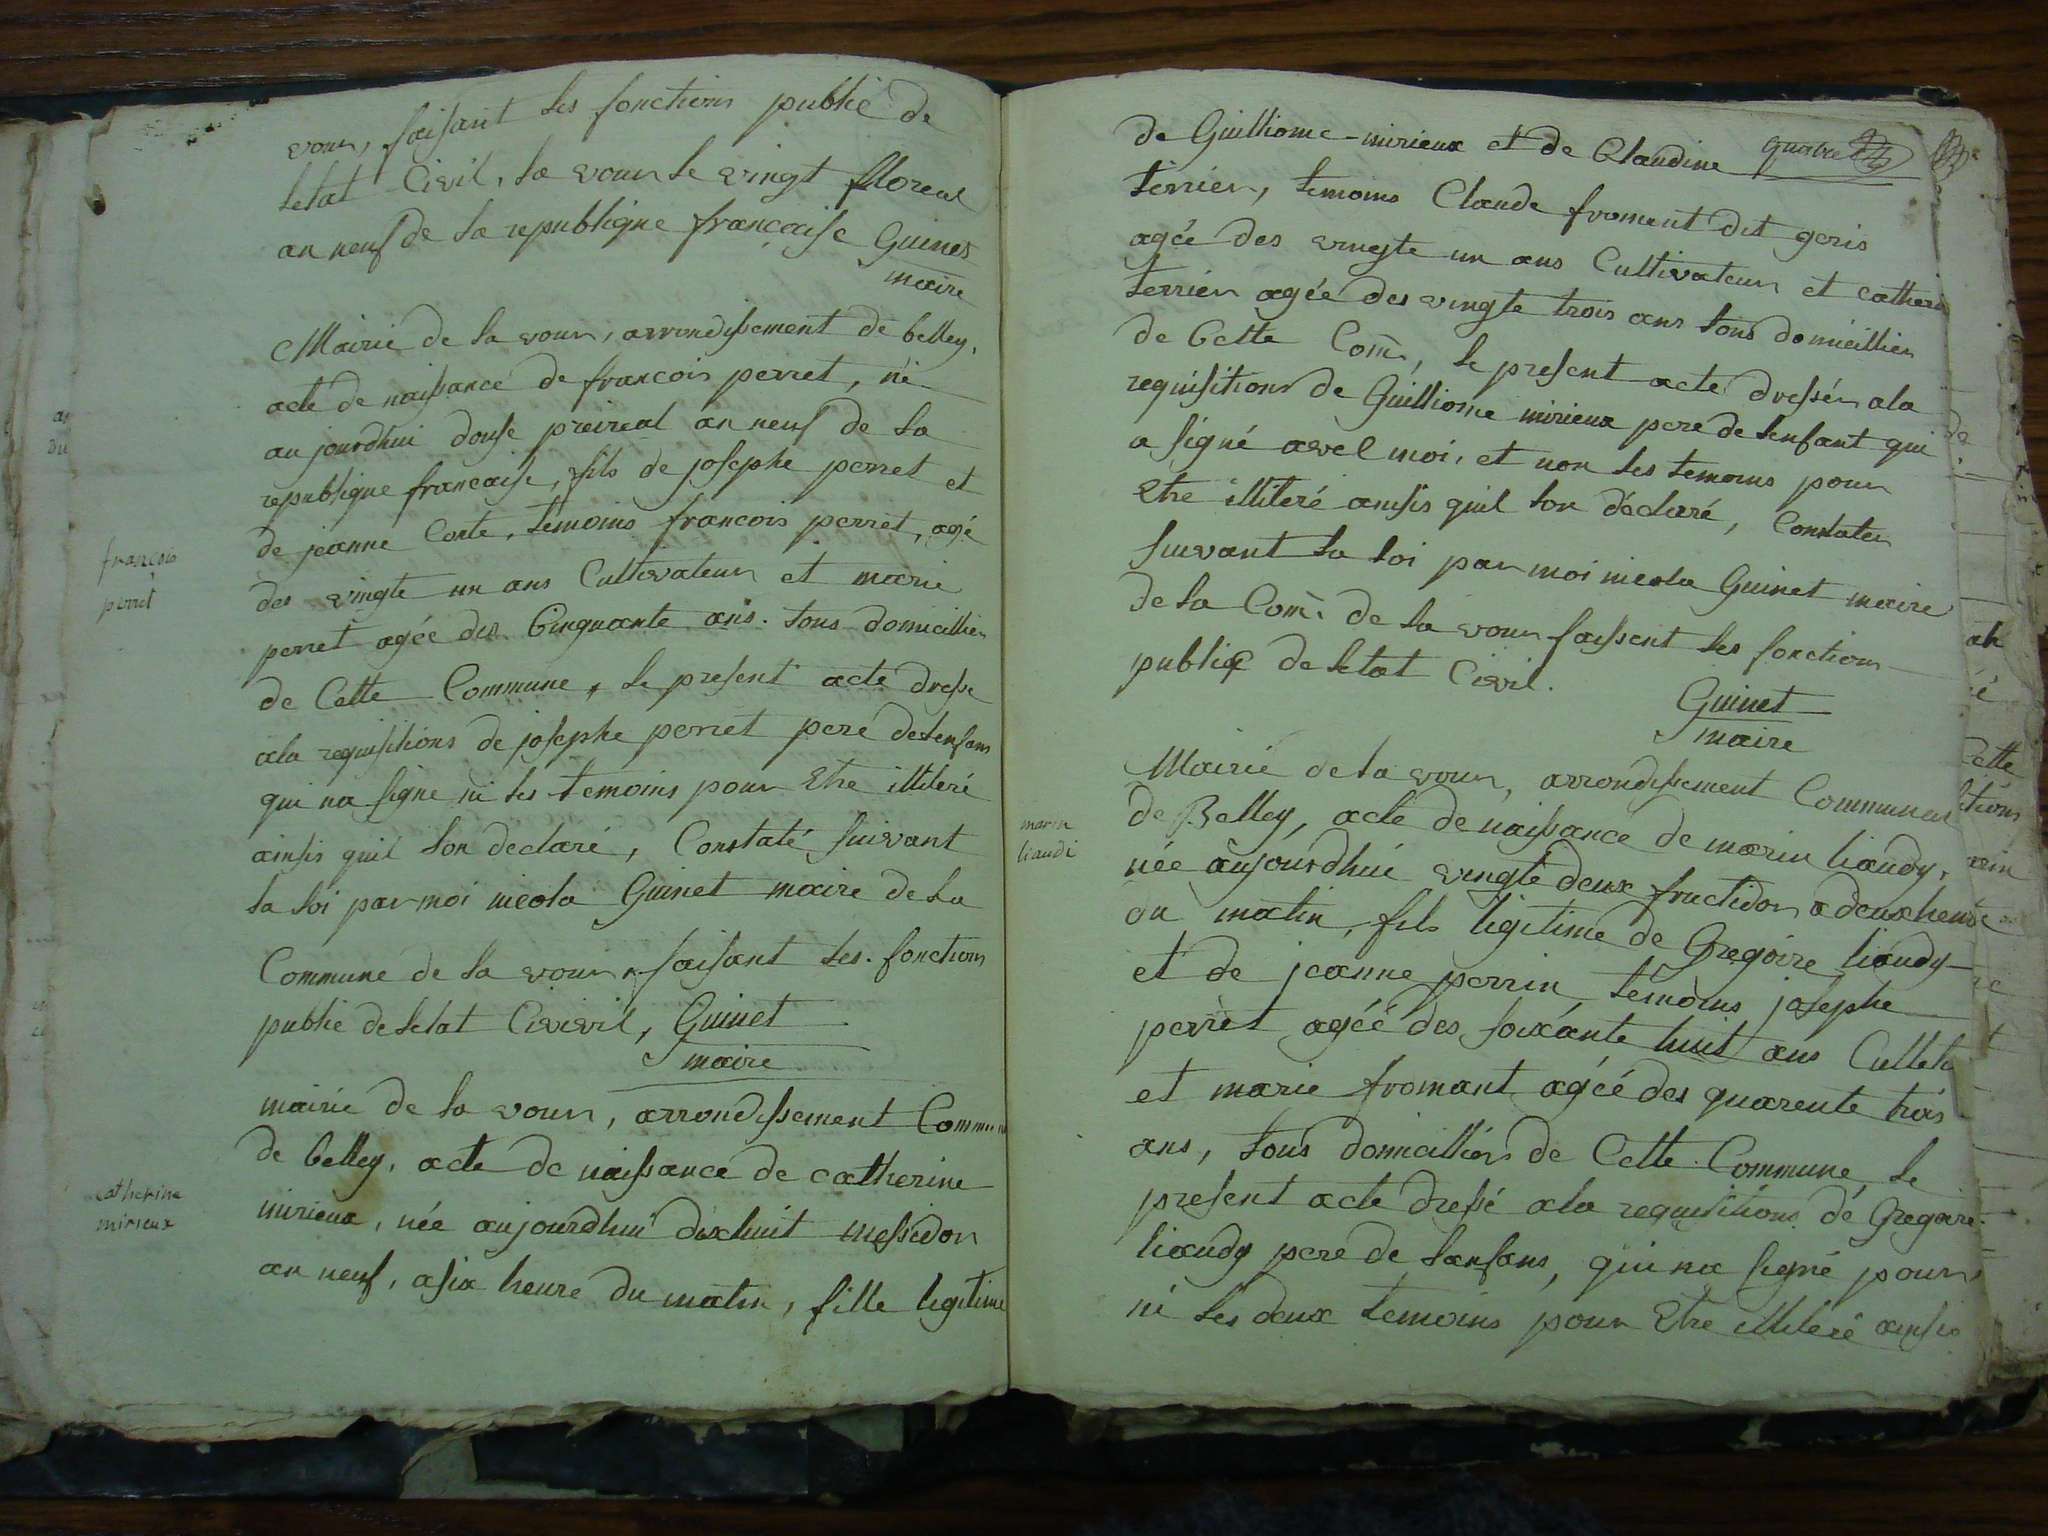 vour, faisant les fonctions publié de
letat Civil, la vour le vingt floreal
an neuf de la republique française Guinet
maire
Mairie de la vour, arrondissement de belley,
acte de naissance de francois perret, né
aujourdhui douse preireal an neuf de la
republique francaise, fils de josephe perret et
de jeanne Conte, temoins francois perret, agé
des vingte un ans Cultivateur et marie
perret agée des Cinquante ans. tous domicillier
de Cette Commune, le present acte dresse
ala requisitions de josephe perret pere delenfans
qui na signe ni les temoins pour Etre illiteré
ainsis quil lon declaré, Constaté suivant
la loi par moi nicola Guinet maire de la
Commune de la vour faisant les fonctions
publié de letat Civivil, Guinet
maire
mairie de la vour, arrondissement Commun
de belley, acte de naissance de catherine
mirieux, née aujourdhui dixhuit messidor
an neuf, asix heure du matin, fille legitime
francois
perret
catherine
mirieux
de Guilliome mirieux et de Claudine quatre
terrier, temoins Claude froment dit geris
agée des vingte un ans Cultivateur et cather
terrier agée des vingte trois ans tous domicillier
de Cette Com, le present acte dressér ala
requisitions de Guilliome mirieux pere de lenfant qui
a signé avel moi, et non les temoins pour
Etre illiteré ainsis quil lon déclaré, Constater
suivant la loi par moi nicola Guinet maire
de la Com. de la vour faissent les fonctions
publix de letat Civil.
Guinet
maire
Mairie de la vour, arrondissement Communal
de Belley, acte de naissance de marin liaudy,
née aujourdhui vingte deux fructidor a deux heure
du matin, fils legitime de Gregoire liaudy
et de jeanne perrin, temoins josephe
perret agéé des soixante huit ans Cultet
et marie fromant agéé des quarente trois
ans, tous domicilliér de Cette Commune, le
present acte dressé ala requisitions de Gregoire
liaudy pere de lanfans, qui na signé pour
ni les deux temoins pour Etre illiteré ainsis
marin
liaudi